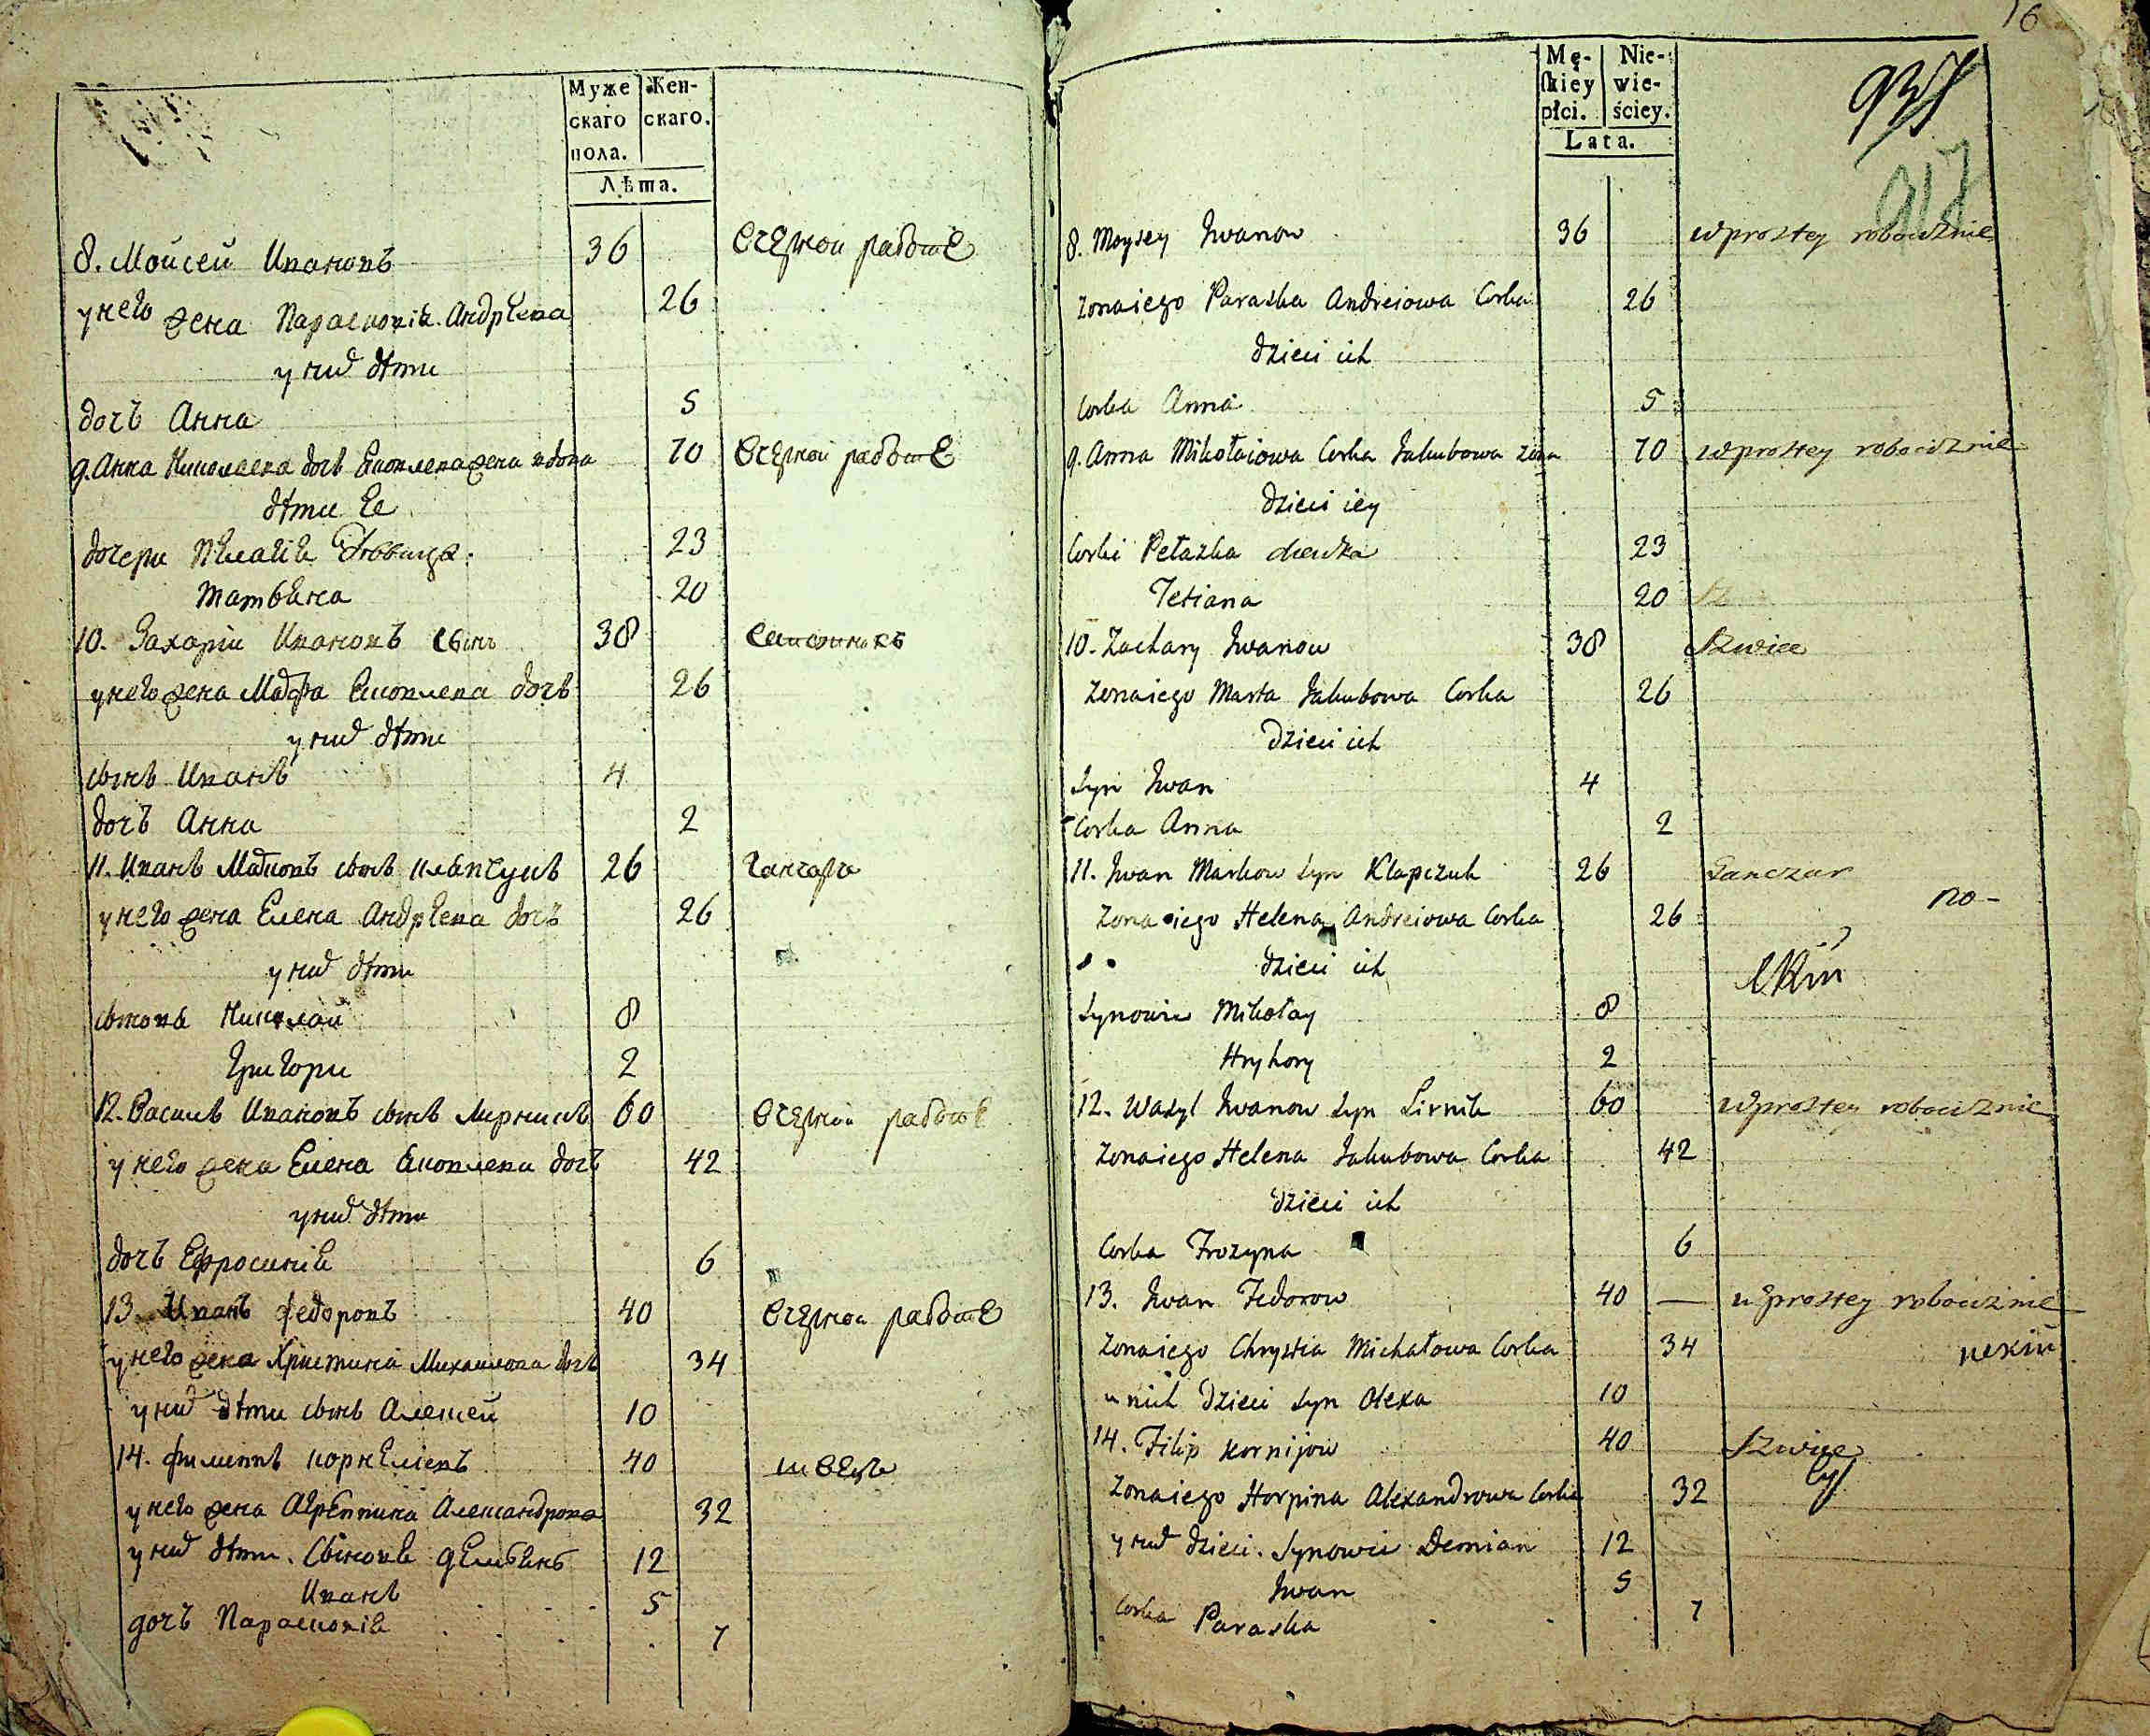 Муже
скаго
пола.
Жен-
скаго.
Лѣта.
8. Мойсей Ивановъ 36 В чернои работе
у него жена Парасковія Андреева 26
у них дѣти
дочь Анна 5
9. Анна Николаева дочь Яковлева жена вдова 70 В чернои работе
дѣти Ее
дочери Пелагія девица 23
татьяна 20
10. Захарiи Ивановъ сынъ 38
у него жена Марфа Яковлева дочь 26
у них дѣти
сынъ Иванъ 4
дочь Анна 2
11. Иванъ Марковъ сынъ клапчукъ 26 Ганчарь
у него жена Елена Андреева дочь 26
у них дѣти
сынова Николай 8
Григори 2
12. Василь Ивановъ сынъ лирникъ 60 В чернои работе
у него жена Елена Яковлева дочь 42
у них дѣти
дочь Ефросинія 6
13. Иванъ федоровъ 40 В чернои работе
у него жена Христина Михаилова дочь 34
у них дѣти сынъ Алексей 10
14. филиппъ корнелiевъ 40 швець
у него жена Агрепина Александрова 32
у них дѣти. Сынове демьянъ 12
Иванъ 5
дочь Парасковія 7
16
Mę-
skiey
płci.
Nie-
wie-
ściey.
Lata.
937
917
8. Moysey Iwanow 36 w prostey robociznie
zona iego Paraska Andreiowa Corka 26
dzieci ich
Corka Anna 5
9. Anna Mikołaiowa Corka Jakubowa zona 70 w prostey robociznie
dzieci iey
Corki Pełazka dziewka 23
Tetiana 20 Sz
10. Zachary Iwanow 38 Szwiec
zona iego Marta Jakubowa Corka 26
dzieci ich
Syn Iwan 4
Corka Anna 2
11. Iwan Markow Syn Klapczuk 26 Ganczar
по-
zona iego Helena Andreiowa Corka 26
dzieci ich
Synowie Mikołay 8
Hryhory 2
12. Wasyl Iwanow Syn Lirnik 60 w prostey robociznie
zona iego Helena Jakubowa Corka 42
dzieci ich
Corka Frozyna 6
13. Iwan Fedorow 40 — w prostey robociznie
zona iego Chrystia Michałowa Corka 34
u nich dzieci syn Olexa 10
14. Filip Kornijow 40 Szwiec
zona iego Horpina Alexandrowa Corka 32
у них dzieci. Synowie Demian 12
Iwan 5
Corka Paraska 7